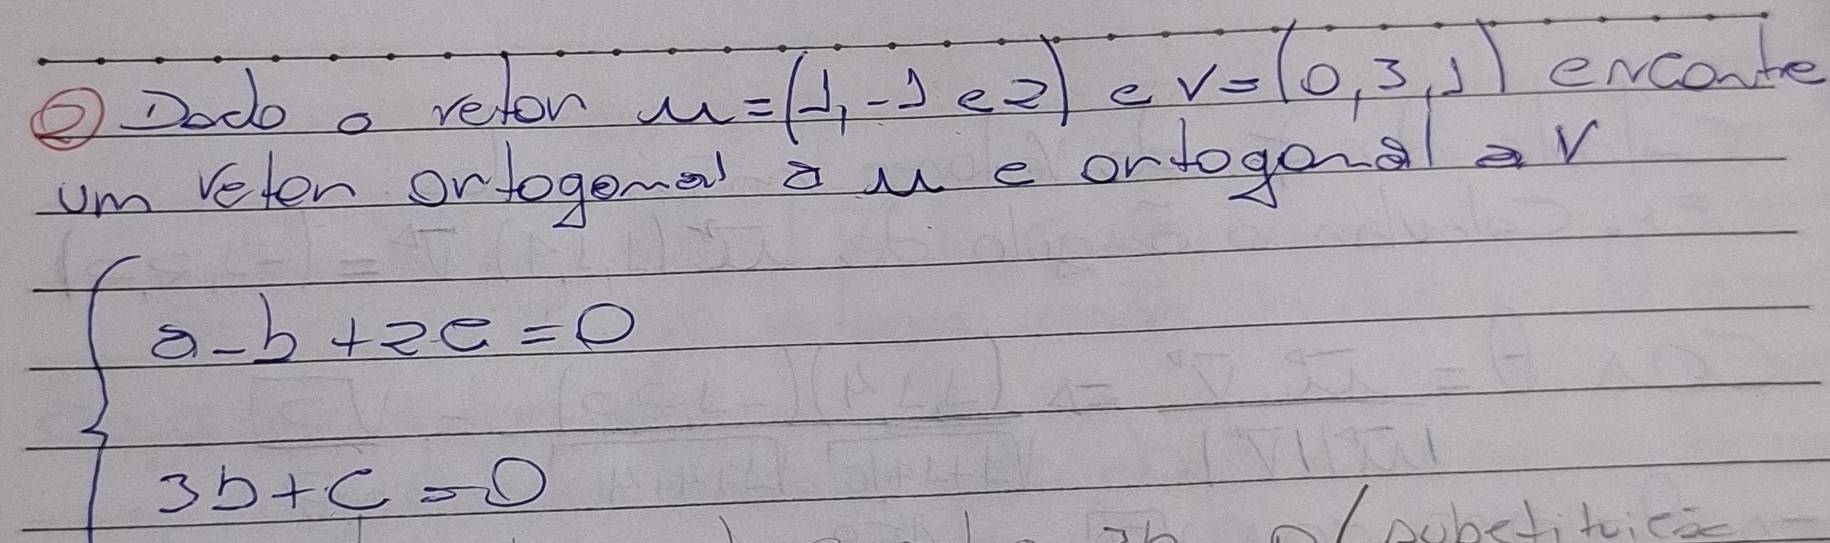 ② Dado o vetor u=(1,-1 e 2) e v=(0,3,1) encontre
um vetor ortogonal a u e ortogonal a v
a-b+2c=0
3b+c=0
p/ substituição